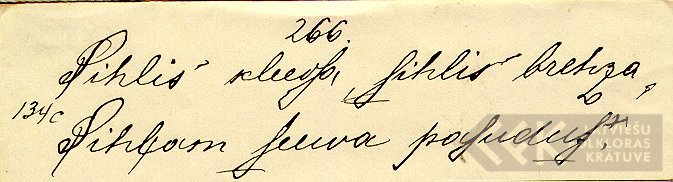 266.
Sihlis' kleeds, sihlis' brehza,
134c
Sihļam seewa pasudus'.
LATVIEŠU
FOLKLORAS
KRĀTUVE